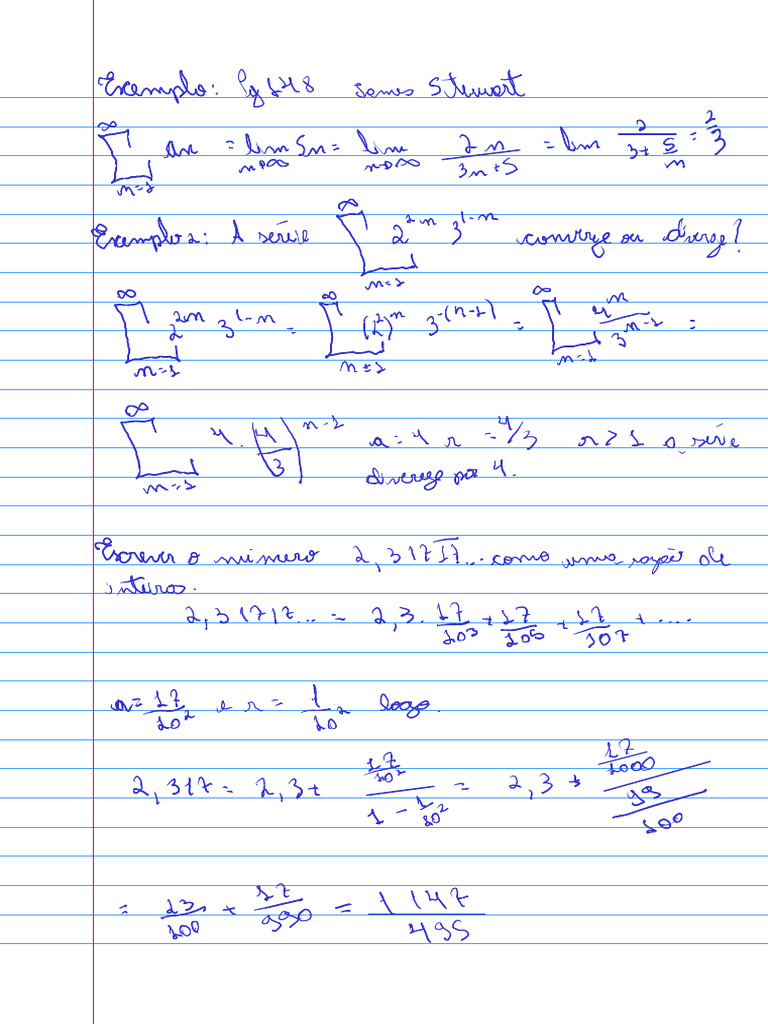 Exemplo: Pg 648 James Stewart
∞ ∑ n=1 an = lim n→∞ Sn = lim n→∞ 2n/(3n+5) = lim 2/(3+5/n) = 2/3
Exemplo 2: A série ∞ ∑ n=1 2^{2n} 3^{1-n} converge ou diverge?
∞ ∑ n=1 2^{2n} 3^{1-n} = ∞ ∑ n=1 (2^2)^n 3^{-(n-1)} = ∞ ∑ n=1 4^n/3^{n-1} =
∞ ∑ n=1 4·(4/3)^{n-1} a=4 r=4/3 r>1 a série
diverege por 4.
Escrever o número 2,31717... como uma razão de
inteiros.
2,31717... = 2,3 · 17/10^3 + 17/10^5 + 17/10^7 + ....
a = 17/10^2 e r = 1/10^2 logo.
2,317 = 2,3 + (17/10^2)/(1 - 1/10^2) = 2,3 + (17/1000)/(99/100)
= 23/100 + 17/990 = 1147/495